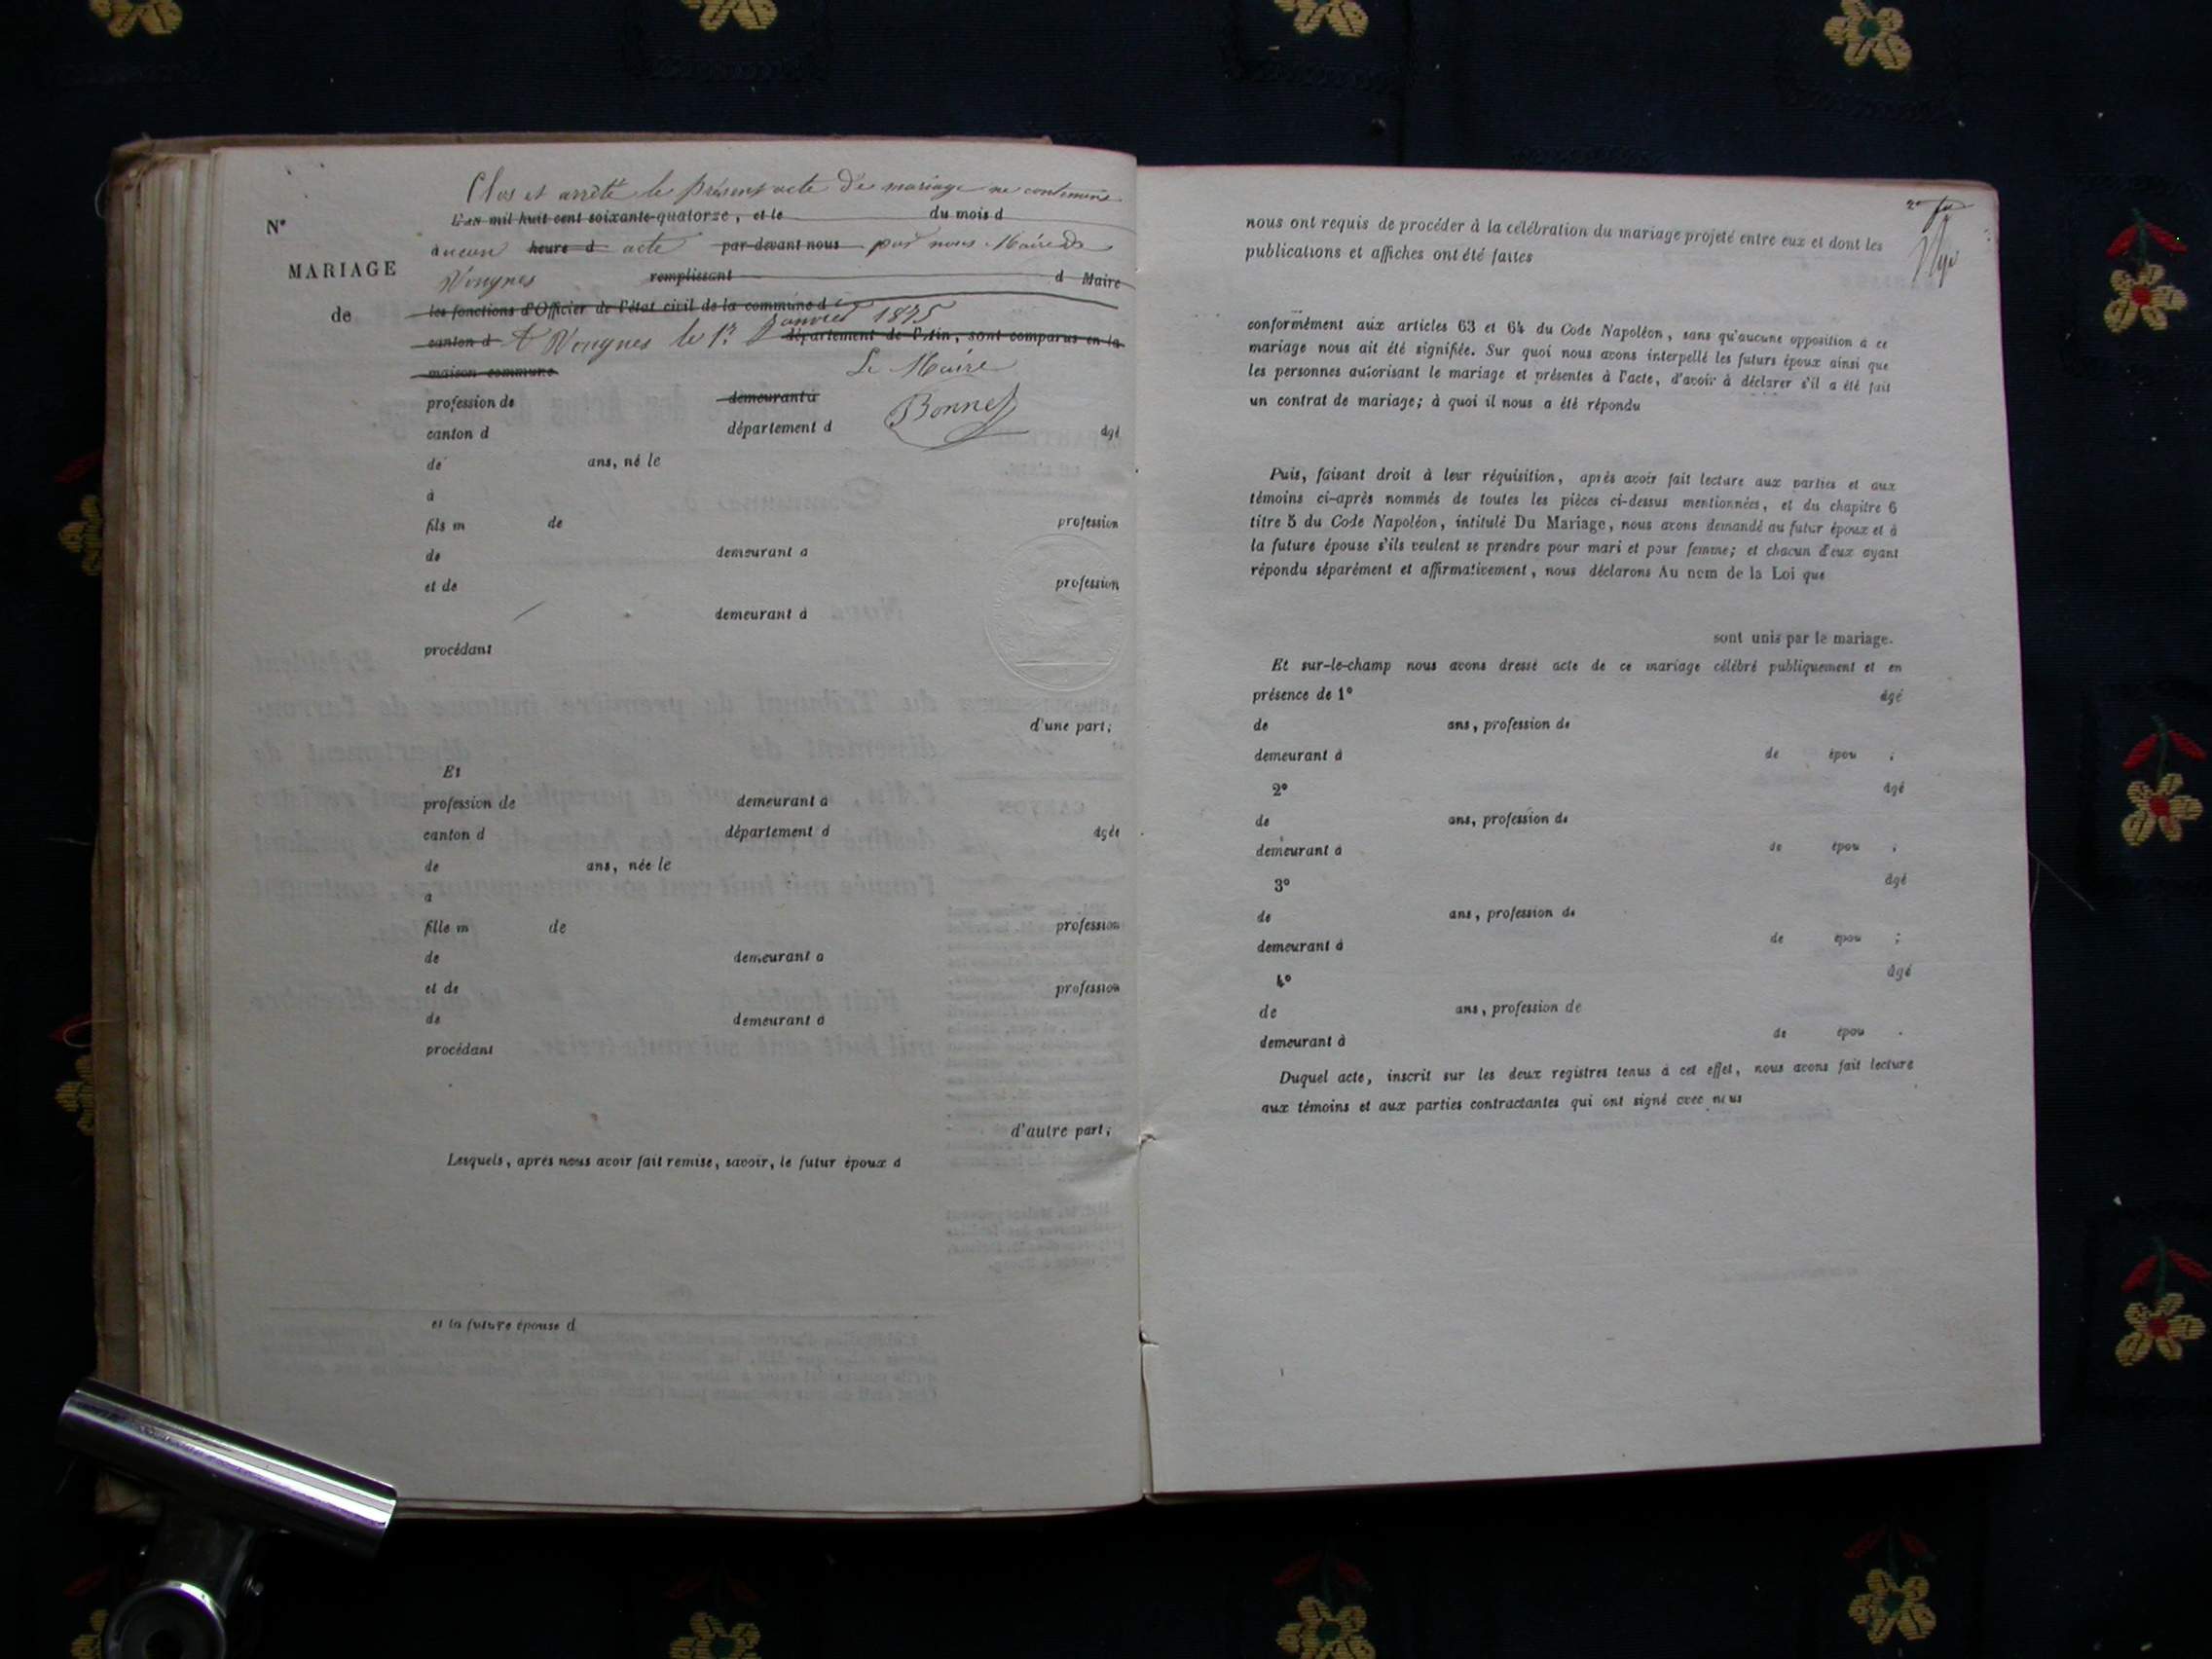 Clos et arrêté le présent acte de mariage ne contenant
L'an mil huit cent soixante-quatorze, et le du mois d
N°
aucun heure d acte par-devant nous par nous Maire de
MARIAGE
Vongnes remplissant d Maire
de
les fonctions d'Officier de l'état civil de la commune d
canton d A Vongnes le 1er Janvier 1875 département de l'Ain, sont comparus en la
maison commune Le Maire
profession de demeurant à Bonnet
canton d département d âgé
de ans, né le
à
fils m de profession
de demeurant à
et de profession
demeurant à
procédant
d'une part;
Et
profession de demeurant à
canton d département d âgée
de ans, née le
à
fille m de profession
de demeurant à
et de profession
de demeurant à
procédant
d'autre part;
Lesquels, après nous avoir fait remise, savoir, le futur époux d
et la future épouse d
nous ont requis de procéder à la célébration du mariage projeté entre eux et dont les
publications et affiches ont été faites
conformément aux articles 63 et 64 du Code Napoléon, sans qu'aucune opposition à ce
mariage nous ait été signifiée. Sur quoi nous avons interpellé les futurs époux ainsi que
les personnes autorisant le mariage et présentes à l'acte, d'avoir à déclarer s'il a été fait
un contrat de mariage; à quoi il nous a été répondu
Puis, faisant droit à leur réquisition, après avoir fait lecture aux parties et aux
témoins ci-après nommés de toutes les pièces ci-dessus mentionnées, et du chapitre 6
titre 5 du Code Napoléon, intitulé Du Mariage, nous avons demandé au futur époux et à
la future épouse s'ils veulent se prendre pour mari et pour femme; et chacun d'eux ayant
répondu séparément et affirmativement, nous déclarons Au nom de la Loi que
sont unis par le mariage.
Et sur-le-champ nous avons dressé acte de ce mariage célébré publiquement et en
présence de 1° âgé
de ans, profession de
demeurant à de épou ;
2° âgé
de ans, profession de
demeurant à de épou ;
3° âgé
de ans, profession de
demeurant à de épou ;
4° âgé
de ans, profession de
demeurant à de épou .
Duquel acte, inscrit sur les deux registres tenus à cet effet, nous avons fait lecture
aux témoins et aux parties contractantes qui ont signé avec nous